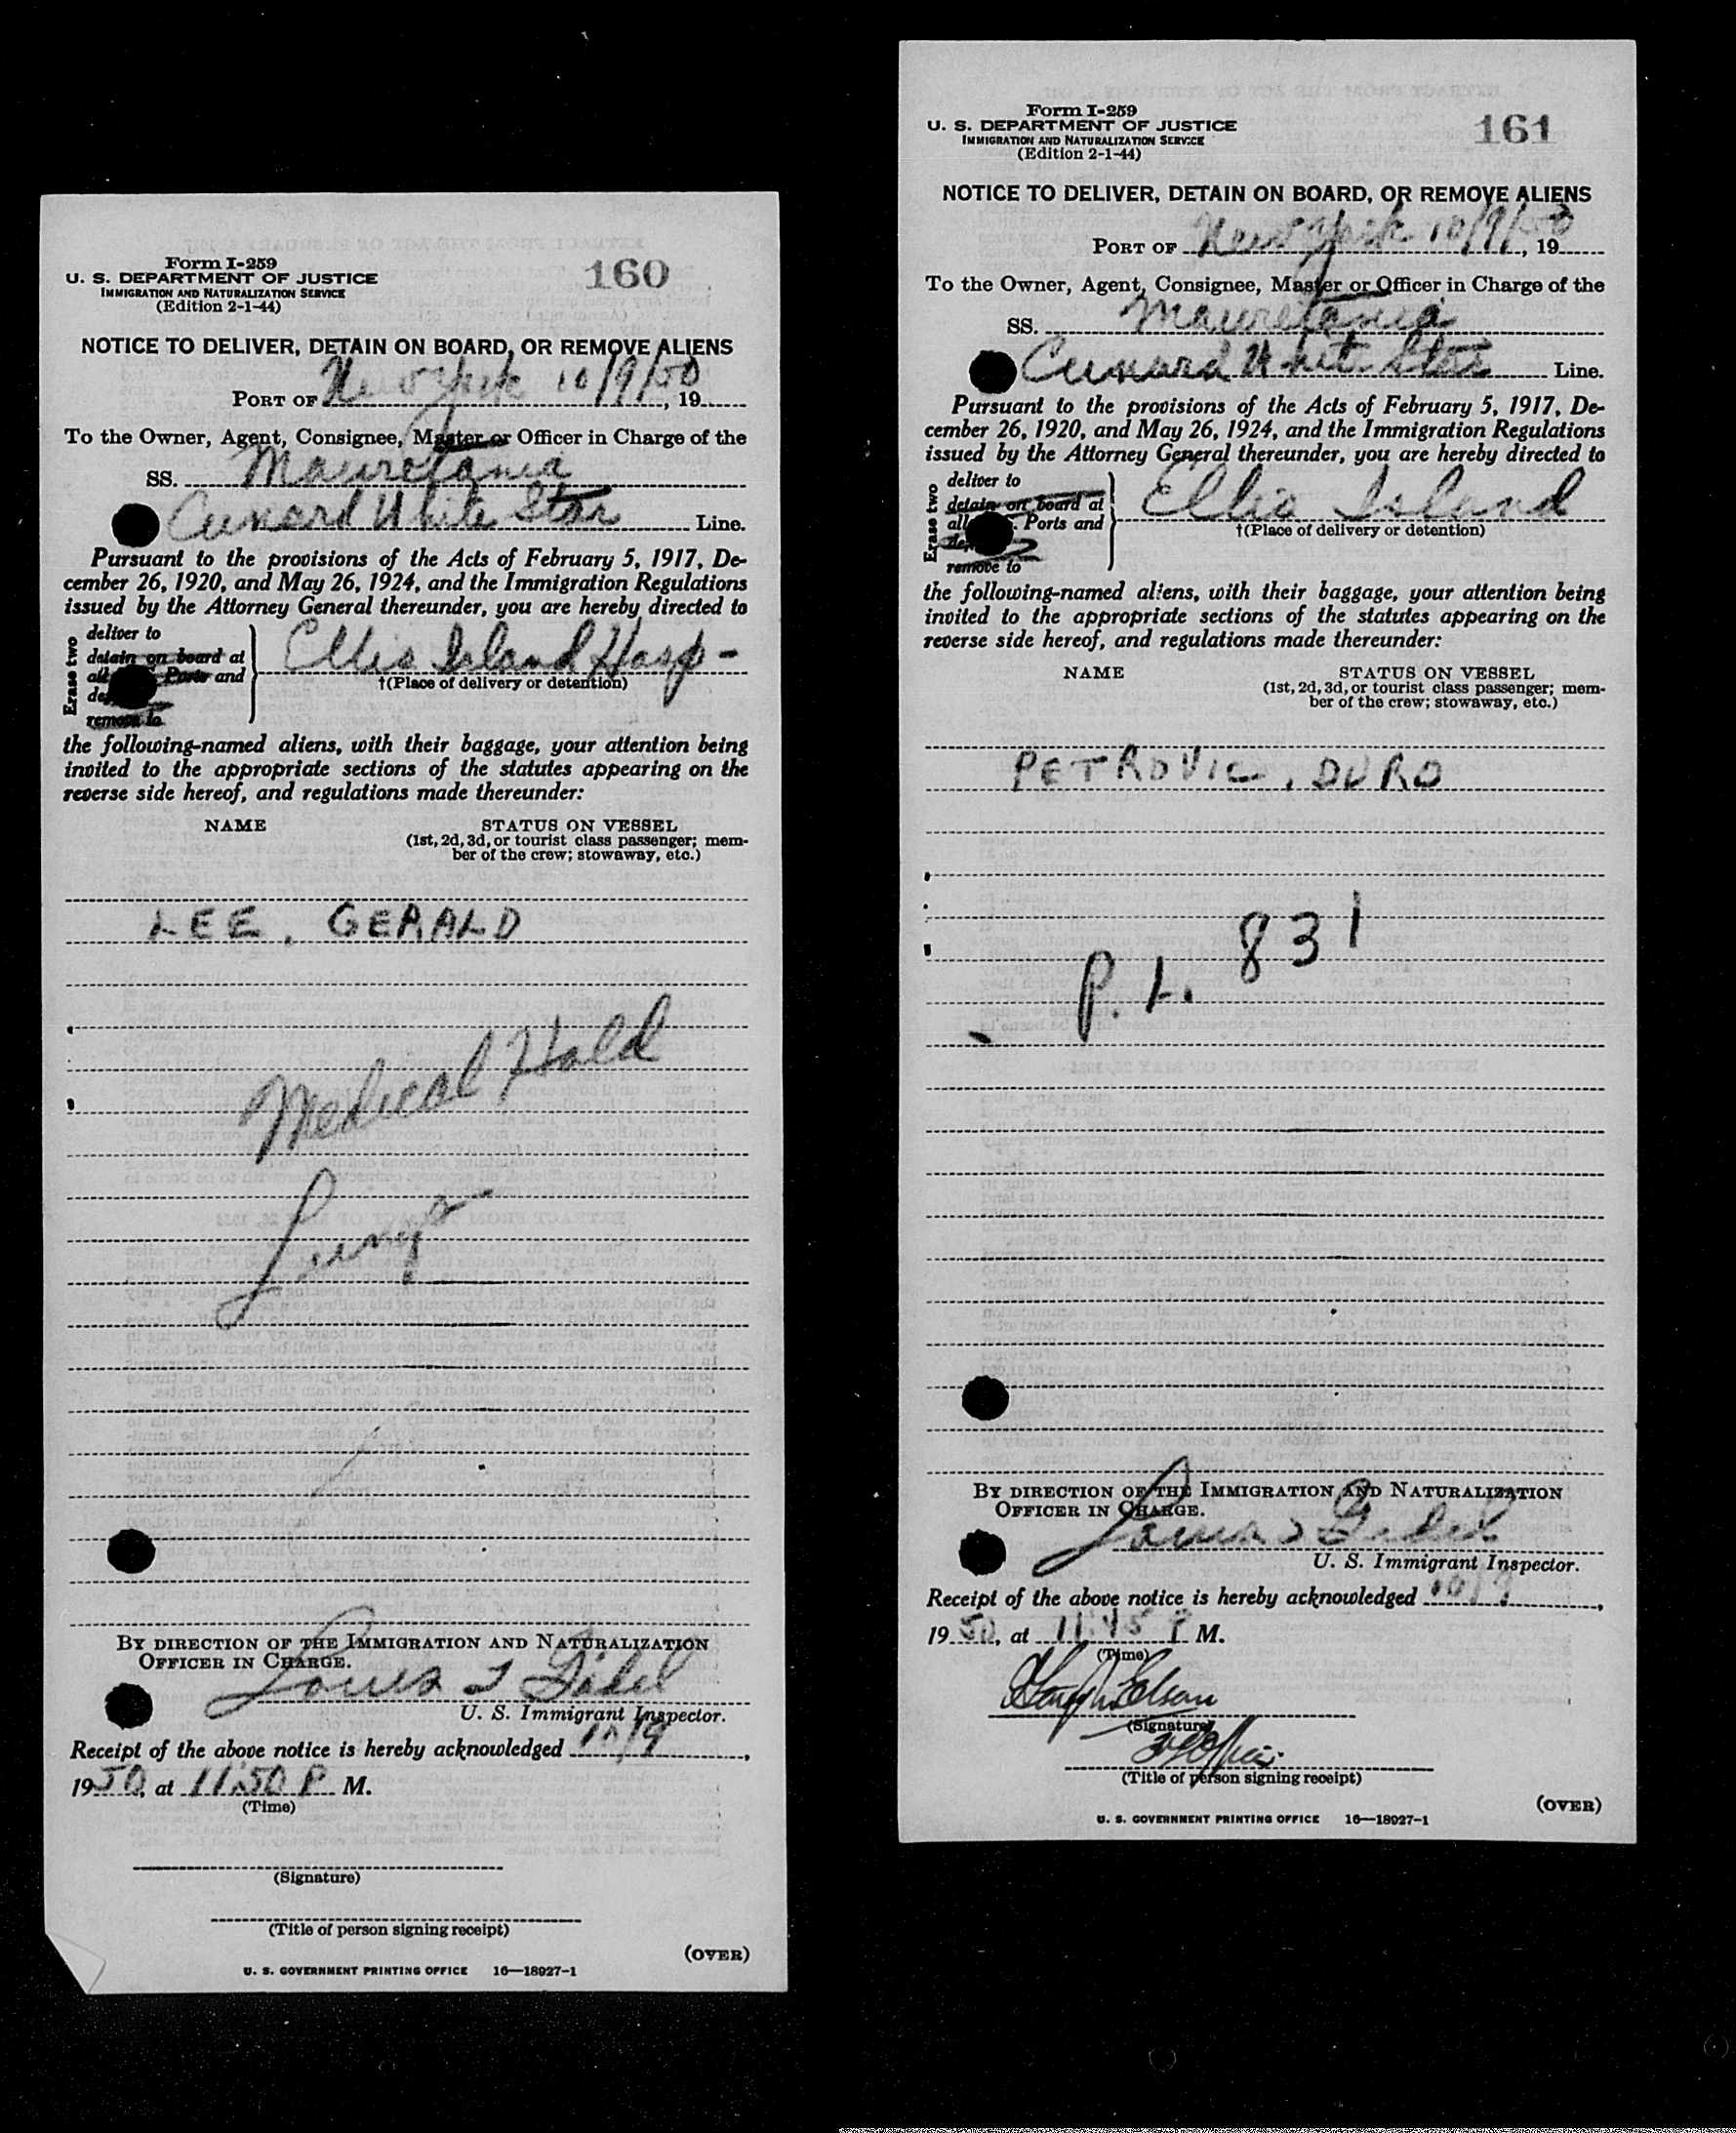 Form I-259
160
U. S. DEPARTMENT OF JUSTICE
IMMIGRATION AND NATURALIZATION SERVICE
(Edition 2-1-44)
NOTICE TO DELIVER, DETAIN ON BOARD, OR REMOVE ALIENS
PORT OF New York 10/9/50, 19
To the Owner, Agent, Consignee, Master or Officer in Charge of the
SS. Mauretania
Cunard White Star Line.
Pursuant to the provisions of the Acts of February 5, 1917, De-
cember 26, 1920, and May 26, 1924, and the Immigration Regulations
issued by the Attorney General thereunder, you are hereby directed to
Erase two
deliver to
detain on board at
all Ports and
remove to
Ellis Island Hosp-
†(Place of delivery or detention)
the following-named aliens, with their baggage, your attention being
invited to the appropriate sections of the statutes appearing on the
reverse side hereof, and regulations made thereunder:
NAME STATUS ON VESSEL
(1st, 2d, 3d, or tourist class passenger; mem-
ber of the crew; stowaway, etc.)
LEE, GERALD
Medical Hold
Lungs
BY DIRECTION OF THE IMMIGRATION AND NATURALIZATION
OFFICER IN CHARGE.
Louis
U. S. Immigrant Inspector.
Receipt of the above notice is hereby acknowledged 10/9,
1950, at 11:50 P M.
(Time)
(Signature)
(Title of person signing receipt)
(OVER)
U. S. GOVERNMENT PRINTING OFFICE 16—18927-1
Form I-259
161
U. S. DEPARTMENT OF JUSTICE
IMMIGRATION AND NATURALIZATION SERVICE
(Edition 2-1-44)
NOTICE TO DELIVER, DETAIN ON BOARD, OR REMOVE ALIENS
PORT OF New York 10/9/50, 19
To the Owner, Agent, Consignee, Master or Officer in Charge of the
SS. Mauretania
Cunard White Star Line.
Pursuant to the provisions of the Acts of February 5, 1917, De-
cember 26, 1920, and May 26, 1924, and the Immigration Regulations
issued by the Attorney General thereunder, you are hereby directed to
Erase two
deliver to
detain on board at
all Ports and
remove to
Ellis Island
†(Place of delivery or detention)
the following-named aliens, with their baggage, your attention being
invited to the appropriate sections of the statutes appearing on the
reverse side hereof, and regulations made thereunder:
NAME STATUS ON VESSEL
(1st, 2d, 3d, or tourist class passenger; mem-
ber of the crew; stowaway, etc.)
PETROVIC, DURO
P. L. 831
BY DIRECTION OF THE IMMIGRATION AND NATURALIZATION
OFFICER IN CHARGE.
Louis
U. S. Immigrant Inspector.
Receipt of the above notice is hereby acknowledged 10/9,
1950, at 11:45 P M.
(Time)
(Signature)
(Title of person signing receipt)
(OVER)
U. S. GOVERNMENT PRINTING OFFICE 16—18927-1